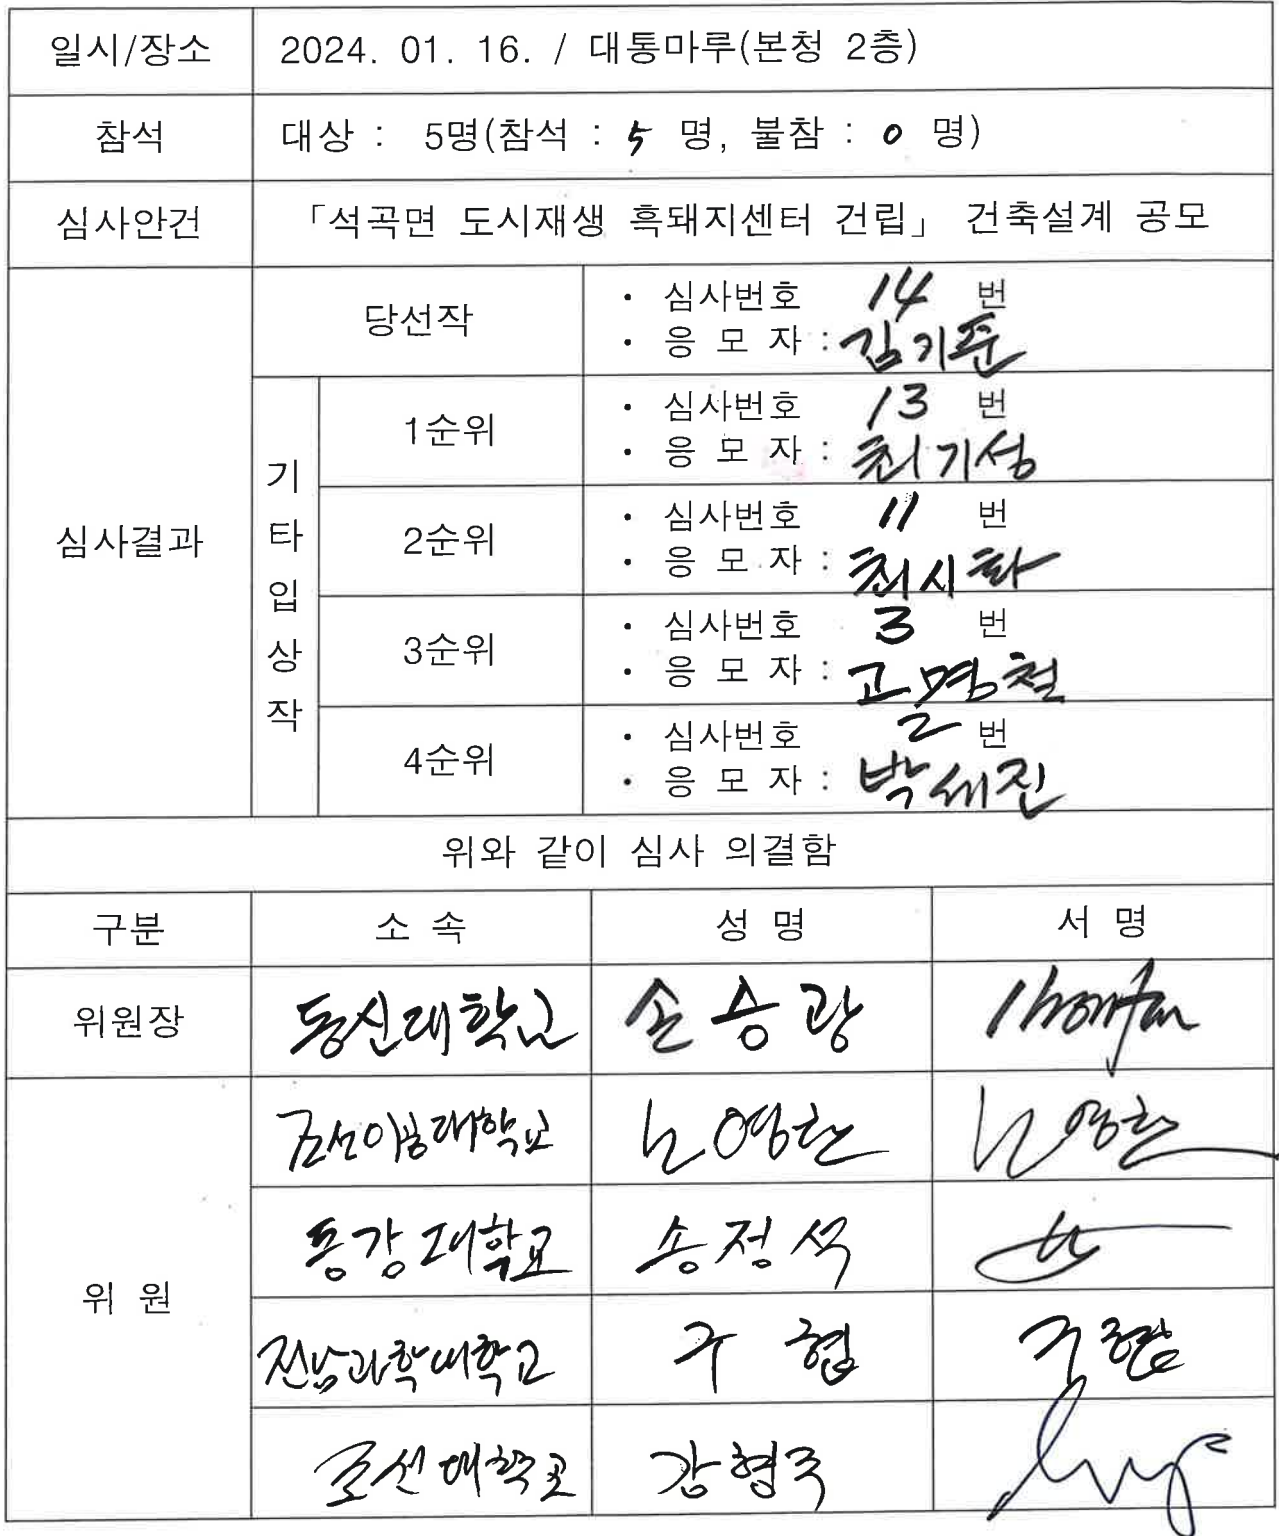 일시/장소 2024. 01. 16. / 대통마루(본청 2층)
참석 대상 : 5명(참석 : 5 명, 불참 : 0 명)
심사안건 「석곡면 도시재생 흑돼지센터 건립」 건축설계 공모
심사결과
당선작
· 심사번호 14 번
· 응 모 자 : 김기준
기타입상작
1순위
· 심사번호 13 번
· 응 모 자 : 최기성
2순위
· 심사번호 11 번
· 응 모 자 : 최시화
3순위
· 심사번호 3 번
· 응 모 자 : 고명철
4순위
· 심사번호 2 번
· 응 모 자 : 박세진
위와 같이 심사 의결함
구분 소 속 성 명 서 명
위원장 동신대학교 손승광
위 원
조선이공대학교 노영한 노영한
동강대학교 송정석
전남과학대학교 구 협 구협
조선대학교 강형구